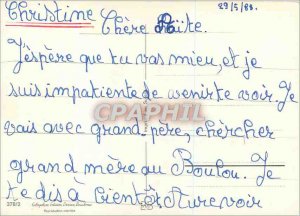 Christine
29/5/88.
Chère Maïte.
J'éspère que tu vas mieu, et je
suis impatiente de venir te voir. Je
vais avec grand père, chercher
grand mère au Boulou. Je
te dis à bientôt. Au revoir
CPARAPHIL